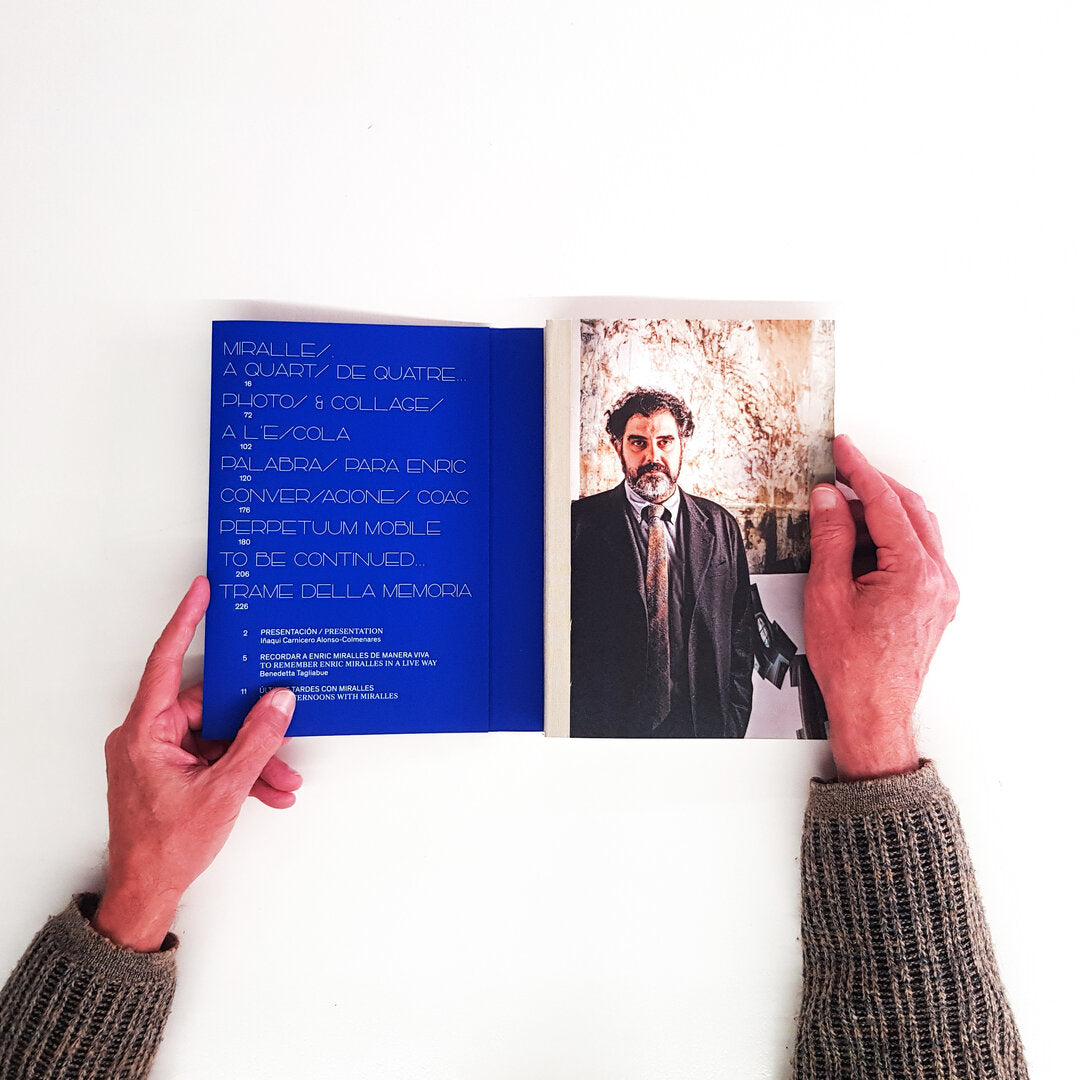 MIRALLES.
A QUARTS DE QUATRE...
16
PHOTOS & COLLAGES
72
A L'ESCOLA
102
PALABRAS PARA ENRIC
120
CONVERSACIONES COAC
176
PERPETUUM MOBILE
180
TO BE CONTINUED...
206
TRAME DELLA MEMORIA
226
2 PRESENTACIÓN / PRESENTATION
Iñaqui Carnicero Alonso-Colmenares
5 RECORDAR A ENRIC MIRALLES DE MANERA VIVA
TO REMEMBER ENRIC MIRALLES IN A LIVE WAY
Benedetta Tagliabue
11 TARDES CON MIRALLES
WITH MIRALLES